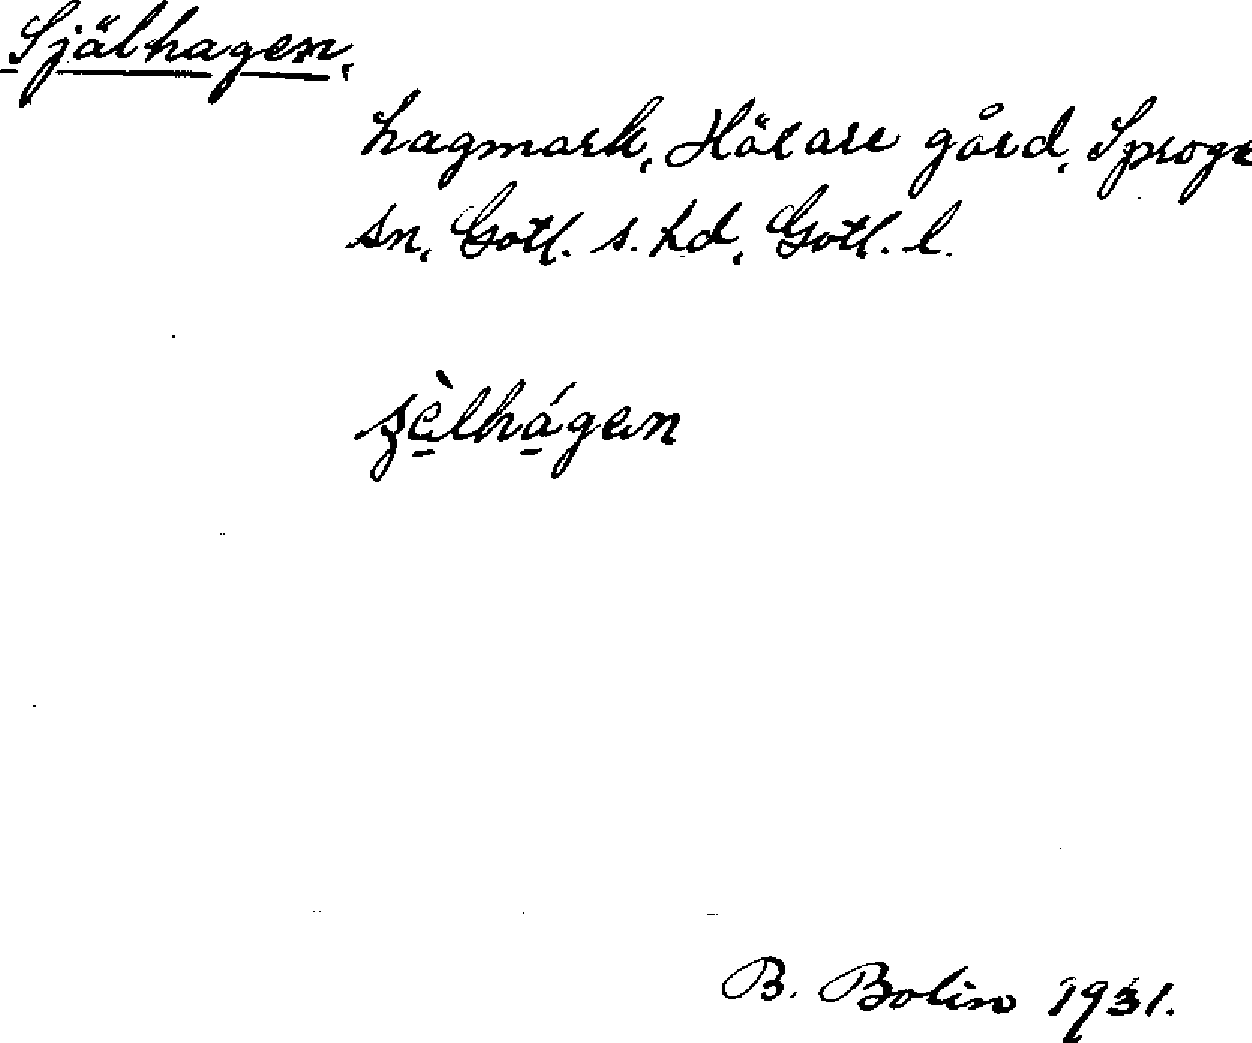 Själhagen,
hagmark, Hälare gård, Sproge
sn, Gotl. s. hd, Gotl. l.
B. Bolin 1931.